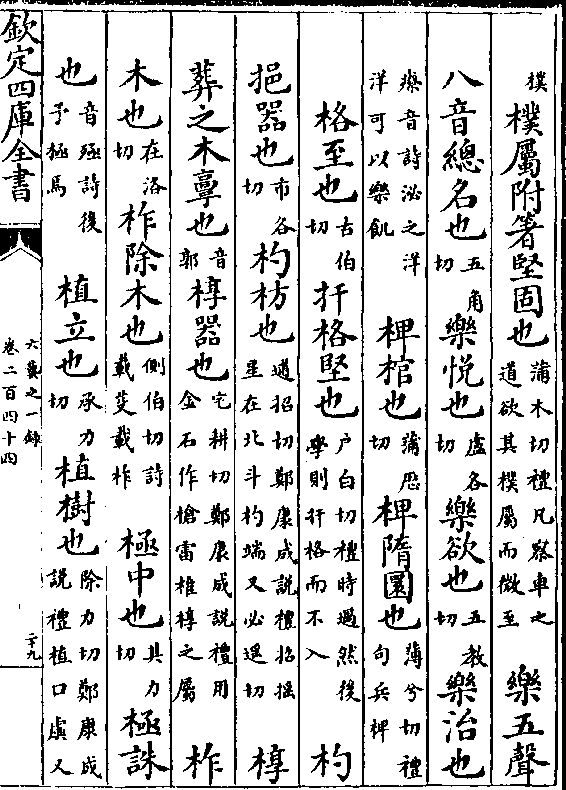 樸樸屬附箸堅固也蒲木切禮凡察車之道欲其樸屬而微至樂五聲
八音總名也五角切樂悅也盧各切樂欲也五教切樂治也
療音詩泌之洋洋可以樂飢椑棺也蒲厯切椑隋圜也薄兮切禮句兵椑
格至也古伯切扞格堅也户白切禮時過然後學則扞格而不入杓
挹器也市各切杓枋也適招切鄭康成説禮招摇星在北斗杓端又必遥切椁
葬之木㝇也音郭椁器也宅耕切鄭康成説禮用金石作槍雷椎椁之屬柞
木也在洛切柞除木也側伯切詩載芟載柞極中也具力切極誅
也音殛詩後予極馬植立也承力切植樹也除力切鄭康成説禮植口虞又
欽定四庫全書
六藝之一録
卷二百四十四
二十九